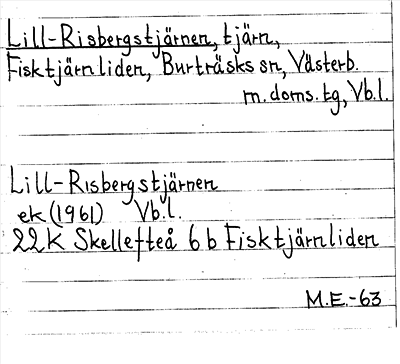 Lill-Risbergstjärnen, tjärn,
Fisktjärnliden, Burträsks sn, Västerb.
m. doms. tg, Vb.l.
Lill-Risbergstjärnen
ek (1961) Vb.l.
22K Skellefteå 6 b Fisktjärnliden
M.E.-63